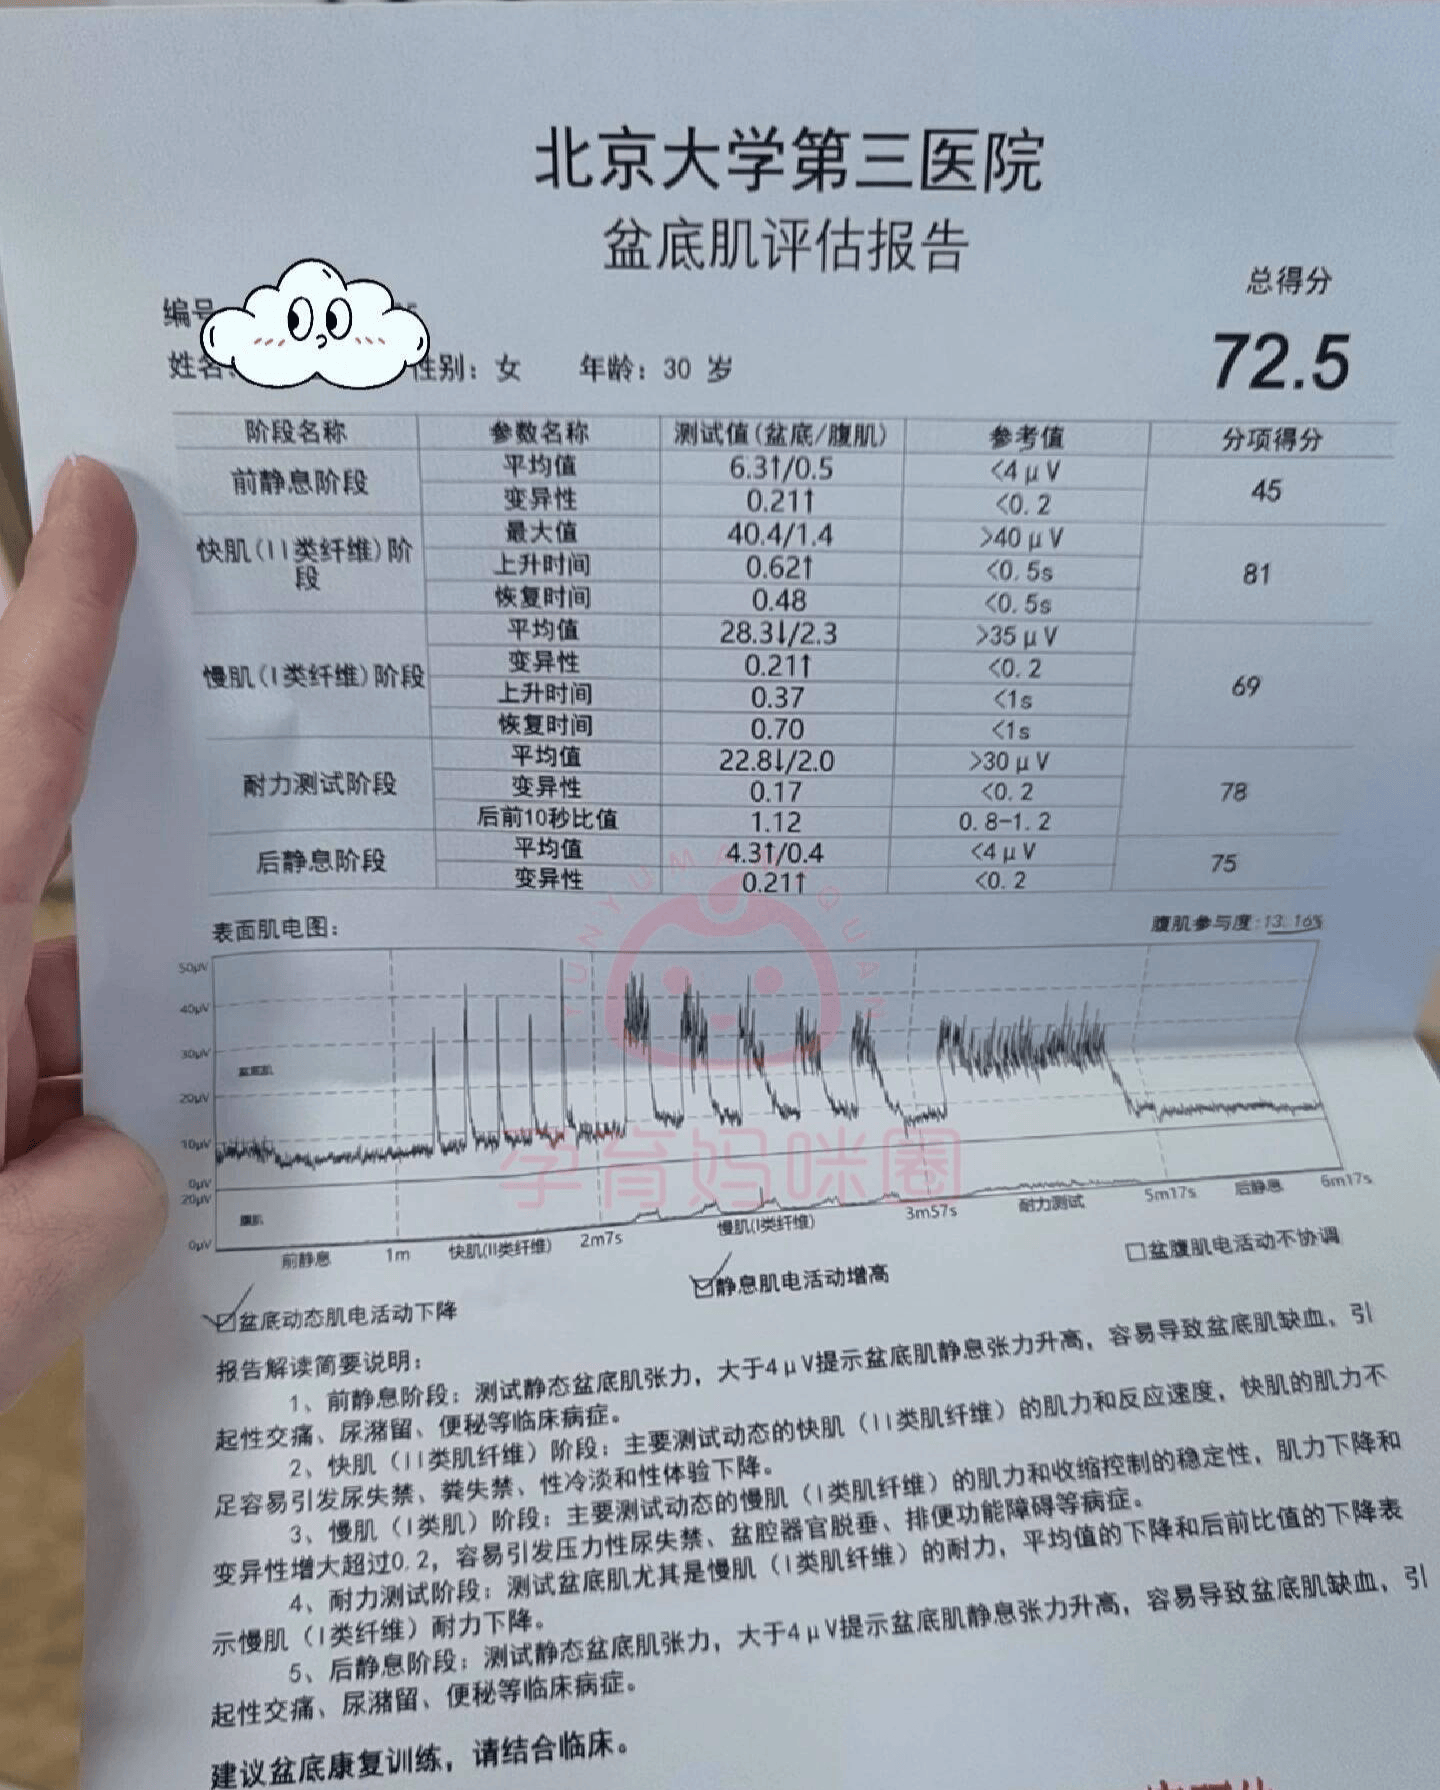 北京大学第三医院
盆底肌评估报告
总得分
编号
72.5
姓名: 性别: 女 年龄: 30 岁
阶段名称 参数名称 测试值(盆底/腹肌) 参考值 分项得分
前静息阶段 平均值 6.3↑/0.5 <4μV 45
变异性 0.21↑ <0.2
快肌(II类纤维)阶段 最大值 40.4/1.4 >40μV 81
上升时间 0.62↑ <0.5s
恢复时间 0.48 <0.5s
慢肌(I类纤维)阶段 平均值 28.3↓/2.3 >35μV 69
变异性 0.21↑ <0.2
上升时间 0.37 <1s
恢复时间 0.70 <1s
耐力测试阶段 平均值 22.8↓/2.0 >30μV 78
变异性 0.17 <0.2
后前10秒比值 1.12 0.8-1.2
后静息阶段 平均值 4.3↑/0.4 <4μV 75
变异性 0.21↑ <0.2
表面肌电图: 腹肌参与度:13.16%
50μV
40μV
30μV
盆底肌
20μV
10μV
0μV
20μV
腹肌
0μV
前静息 1m 快肌(II类纤维) 2m7s 慢肌(I类纤维) 3m57s 耐力测试 5m17s 后静息 6m17s
YUNYUMAMIQUAN
孕育妈咪圈
☑盆底动态肌电活动下降 ☑静息肌电活动增高 □盆腹肌电活动不协调
报告解读简要说明:
1、前静息阶段: 测试静态盆底肌张力, 大于4μV提示盆底肌静息张力升高, 容易导致盆底肌缺血, 引
起性交痛、尿潴留、便秘等临床病症。
2、快肌(II类肌纤维)阶段: 主要测试动态的快肌(II类肌纤维)的肌力和反应速度, 快肌的肌力不
足容易引发尿失禁、粪失禁、性冷淡和性体验下降。
3、慢肌(I类肌)阶段: 主要测试动态的慢肌(I类肌纤维)的肌力和收缩控制的稳定性, 肌力下降和
变异性增大超过0.2, 容易引发压力性尿失禁、盆腔器官脱垂、排便功能障碍等病症。
4、耐力测试阶段: 测试盆底肌尤其是慢肌(I类肌纤维)的耐力, 平均值的下降和后前比值的下降表
示慢肌(I类纤维)耐力下降。
5、后静息阶段: 测试静态盆底肌张力, 大于4μV提示盆底肌静息张力升高, 容易导致盆底肌缺血, 引
起性交痛、尿潴留、便秘等临床病症。
建议盆底康复训练, 请结合临床。